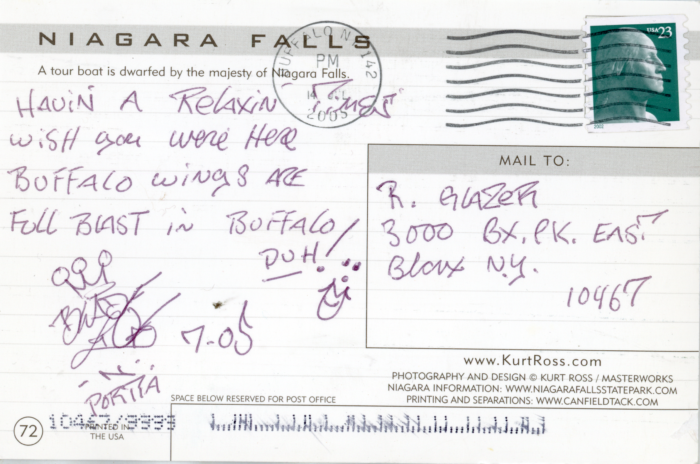 NIAGARA FALLS
A tour boat is dwarfed by the majesty of Niagara Falls.
BUFFALO NY 142
PM
2005
USA 23
HAVIN A RELAXIN TIMES
WISH you WERE HERE
BUFFALO WINGS ARE
FULL BLAST IN BUFFALO
DUH!
7-05
PORTIA
MAIL TO:
R. GLAZER
3000 BX. PK. EAST
BRONX N.Y.
10467
www.KurtRoss.com
PHOTOGRAPHY AND DESIGN © KURT ROSS / MASTERWORKS
NIAGARA INFORMATION: WWW.NIAGARAFALLSSTATEPARK.COM
PRINTING AND SEPARATIONS: WWW.CANFIELDTACK.COM
SPACE BELOW RESERVED FOR POST OFFICE
72
10467/9999
PRINTED IN
THE USA